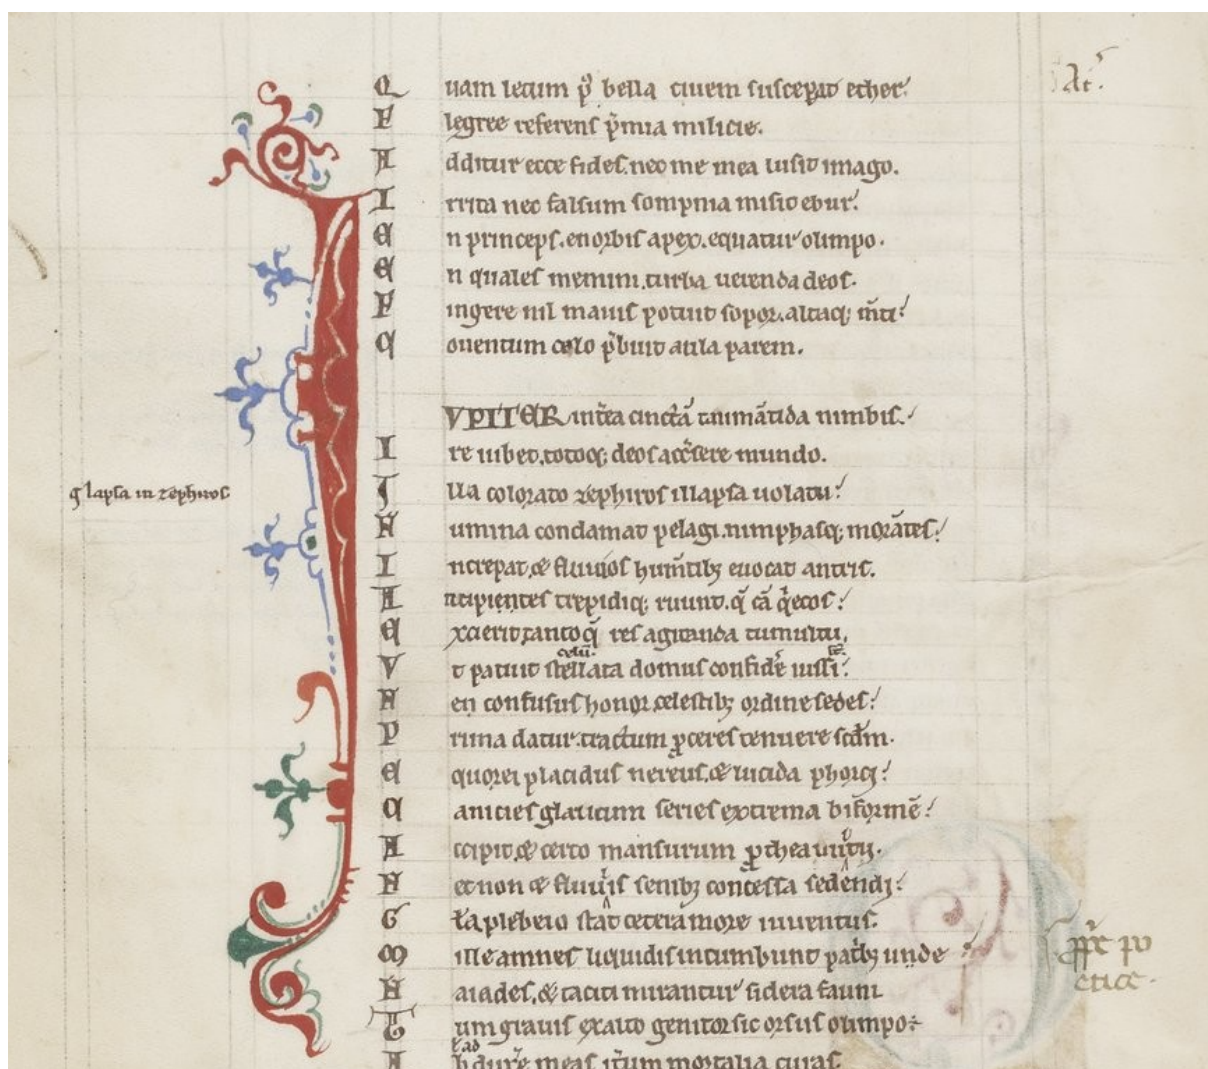 Quam letum p̄ bella ciuem suscepat ether.
Flegree referens p̄mia milicie.
Additur ecce fides. nec me mea lusit imago.
Irrita nec falsum sompnia misit ebur.
En princeps. en orbis apex. equatur olimpo.
En quales memini. turba uerenda deos.
Fingere nil maius potuit sopor. altaq; m̄ti
Conuentum celo p̄buit aula parem.
IVPITER int̄ea cinctā taumātida nimbis.
Ire iubet. totoq; deos acc̄sere mundo.
Illa colorato zephiros illapsa uolatu
q̄ lapsa in zephiros
Numina conclamat pelagi. nimphasq; morātes
Increpat. & fluuios hum̄tibȝ euocat antris.
Ancipientes trepidiq; ruunt. q̄ cā q̄etos
Excierit. tantoq̄ res agitanda tumultu.
Vt patuit stellata domus confid̄e iussi
celū
Nen confusus honor. celestibȝ ordine sedes
Prima datur. tractum ꝓceres tenuere scd̄m.
Equorei placidus nereus. & lucida phorci
Canicies glaucum series extrema biformē
Accipit. & certo mansurum ꝓthea uultu.
Necnon & fluuiis senibȝ concessa sedendi
Gl̄a plebeio stat cetera more iuuentus.
Mille amnes liquidis incumbunt patribȝ unde
Naiades. & taciti mirantur sidera fauni
Tum grauis exalto genitor sic orsus olimpo.
Abdux̄e meas it̄um mortalia curas.